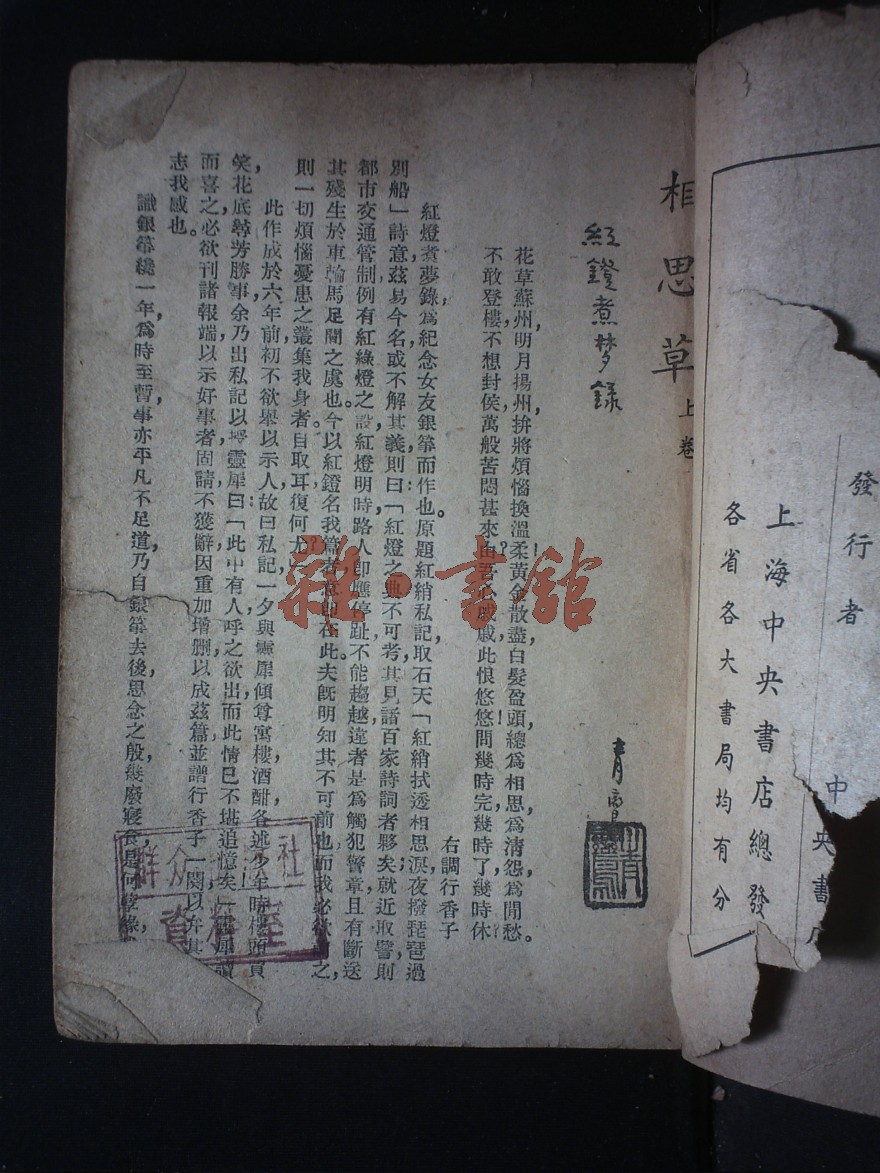 發行者
上海中央書店總發
各省各大書局均有分
中央書
相思草 上卷
紅鐙煮梦录
青
花草蘇州，明月揚州，拚將煩惱換溫柔！黃金散盡，白髮盈頭，總爲相思，爲清怨，爲閒愁。
不敢登樓，不想封侯，萬般苦悶甚來由？吾心戚戚，此恨悠悠！問幾時完，幾時了，幾時休？
右調行香子
紅燈煮夢錄，爲紀念女友銀箏而作也。原題紅綃私記，取石天「紅綃拭透相思淚，夜撥琵琶過
別船」詩意，茲易今名，或不解其義，則曰：「紅燈之典不可考，其見諸百家詩詞者夥矣；就近取譬，則
都市交通管制，例有紅綠燈之設，紅燈明時，路人卽應停趾，不能趨越，違者是爲觸犯警章，且有斷送
其殘生於車輪馬足間之虞也。今以紅鐙名我篇者，意卽在此。夫旣明知其不可前也，而我必欲之，
則一切煩惱憂患之叢集我身者，自取耳，復何尤？」
此作成於六年前，初不欲舉以示人，故曰私記。一夕，與靈犀傾尊寓樓，酒酣，各述少年時樓頭買
笑，花底尋芳勝事，余乃出私記以
靈犀曰：「此中有人，呼之欲出，而此情已不堪追憶矣！」靈犀讀
而喜之，必欲刊諸報端，以示好事者，固請不獲辭，因重加增删，以成茲篇，並譜行香子一闋以弁其
志我感也。
識銀箏纔一年，爲時至暫，事亦平凡不足道，乃自銀箏去後，思念之殷，幾廢寢食，是何孽緣
群众 社
資
雜·書館